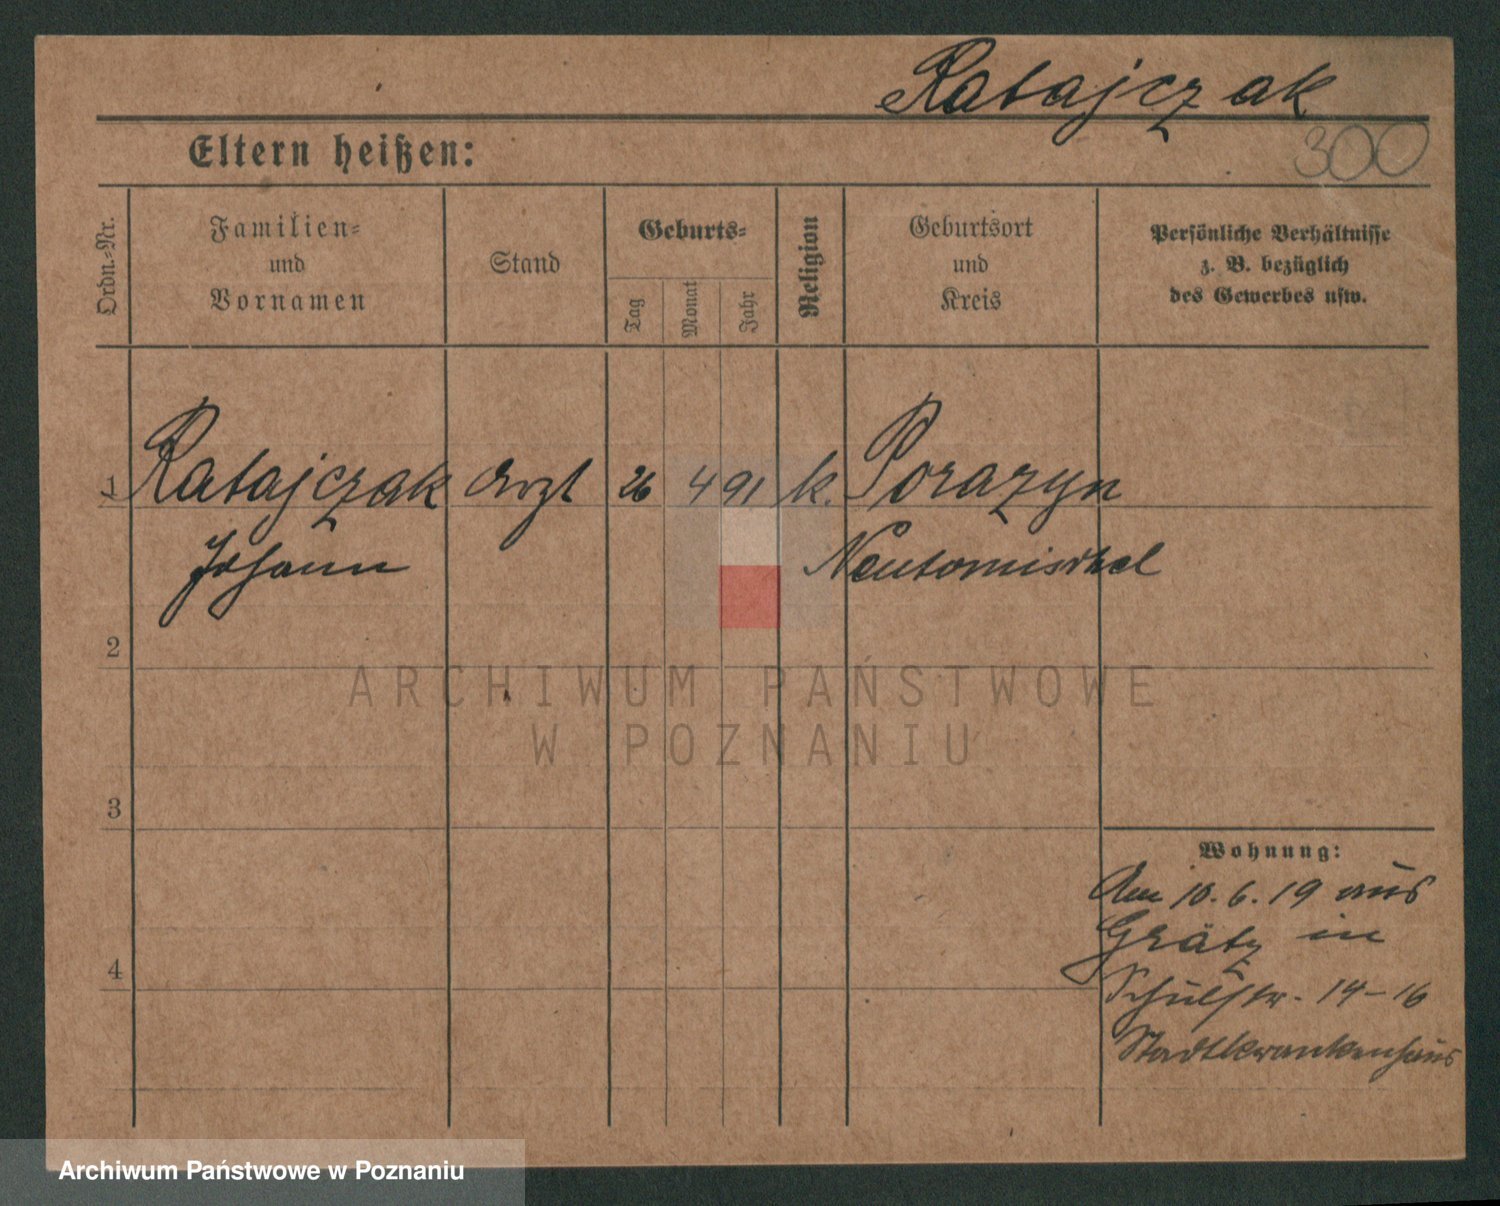 Ratajczak
300
Eltern heißen:
Ordn.-Nr.
Familien-
und
Vornamen
Stand
Geburts-
Tag
Monat
Jahr
Religion
Geburtsort
und
Kreis
Persönliche Verhältnisse
z. B. bezüglich
des Gewerbes usw.
1 Ratajczak Arzt 26 4 91 k. Porazyn
Johann Neutomischel
2
3
4
Wohnung:
Am 10.6.19 aus
Grätz in
Schulstr. 14-16
Stadtkrankenhaus
ARCHIWUM PAŃSTWOWE
W POZNANIU
Archiwum Państwowe w Poznaniu